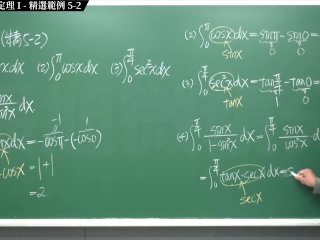 定理 I - 精選範例 5-2
(精5-2)
x dx (2) ∫₀^π cosx dx (3) ∫₀^{π/4} sec²x dx
sinx/… dx.
dx = -cosπ - (-cos0)
-cosx
= 1 + 1
= 2
(2) ∫₀^π cosx dx = sinπ - sin0 =
sinx 0 0
(3) ∫₀^{π/4} sec²x dx = tan π/4 - tan0
tanx 1 0
(4) ∫₀^{π/4} sinx/(1-sin²x) dx = ∫₀^{π/4} sinx/cos²x d
= ∫₀^{π/4} tanx·secx dx = s
secx